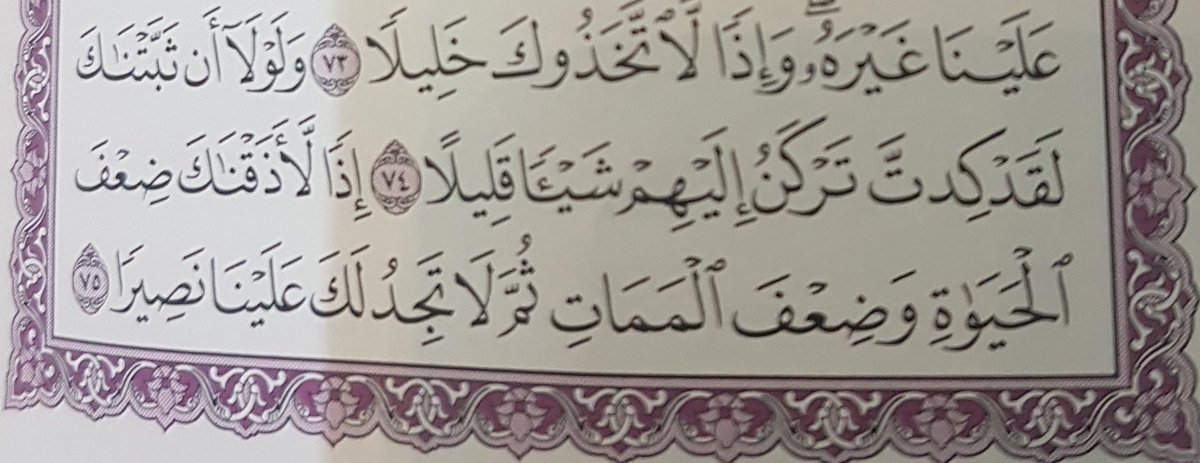 عَلَيْنَا غَيْرَهُۥ ۖ وَإِذًا لَّٱتَّخَذُوكَ خَلِيلًا ٧٣ وَلَوْلَآ أَن ثَبَّتْنَٰكَ
لَقَدْ كِدتَّ تَرْكَنُ إِلَيْهِمْ شَيْـًٔا قَلِيلًا ٧٤ إِذًا لَّأَذَقْنَٰكَ ضِعْفَ
ٱلْحَيَوٰةِ وَضِعْفَ ٱلْمَمَاتِ ثُمَّ لَا تَجِدُ لَكَ عَلَيْنَا نَصِيرًا ٧٥